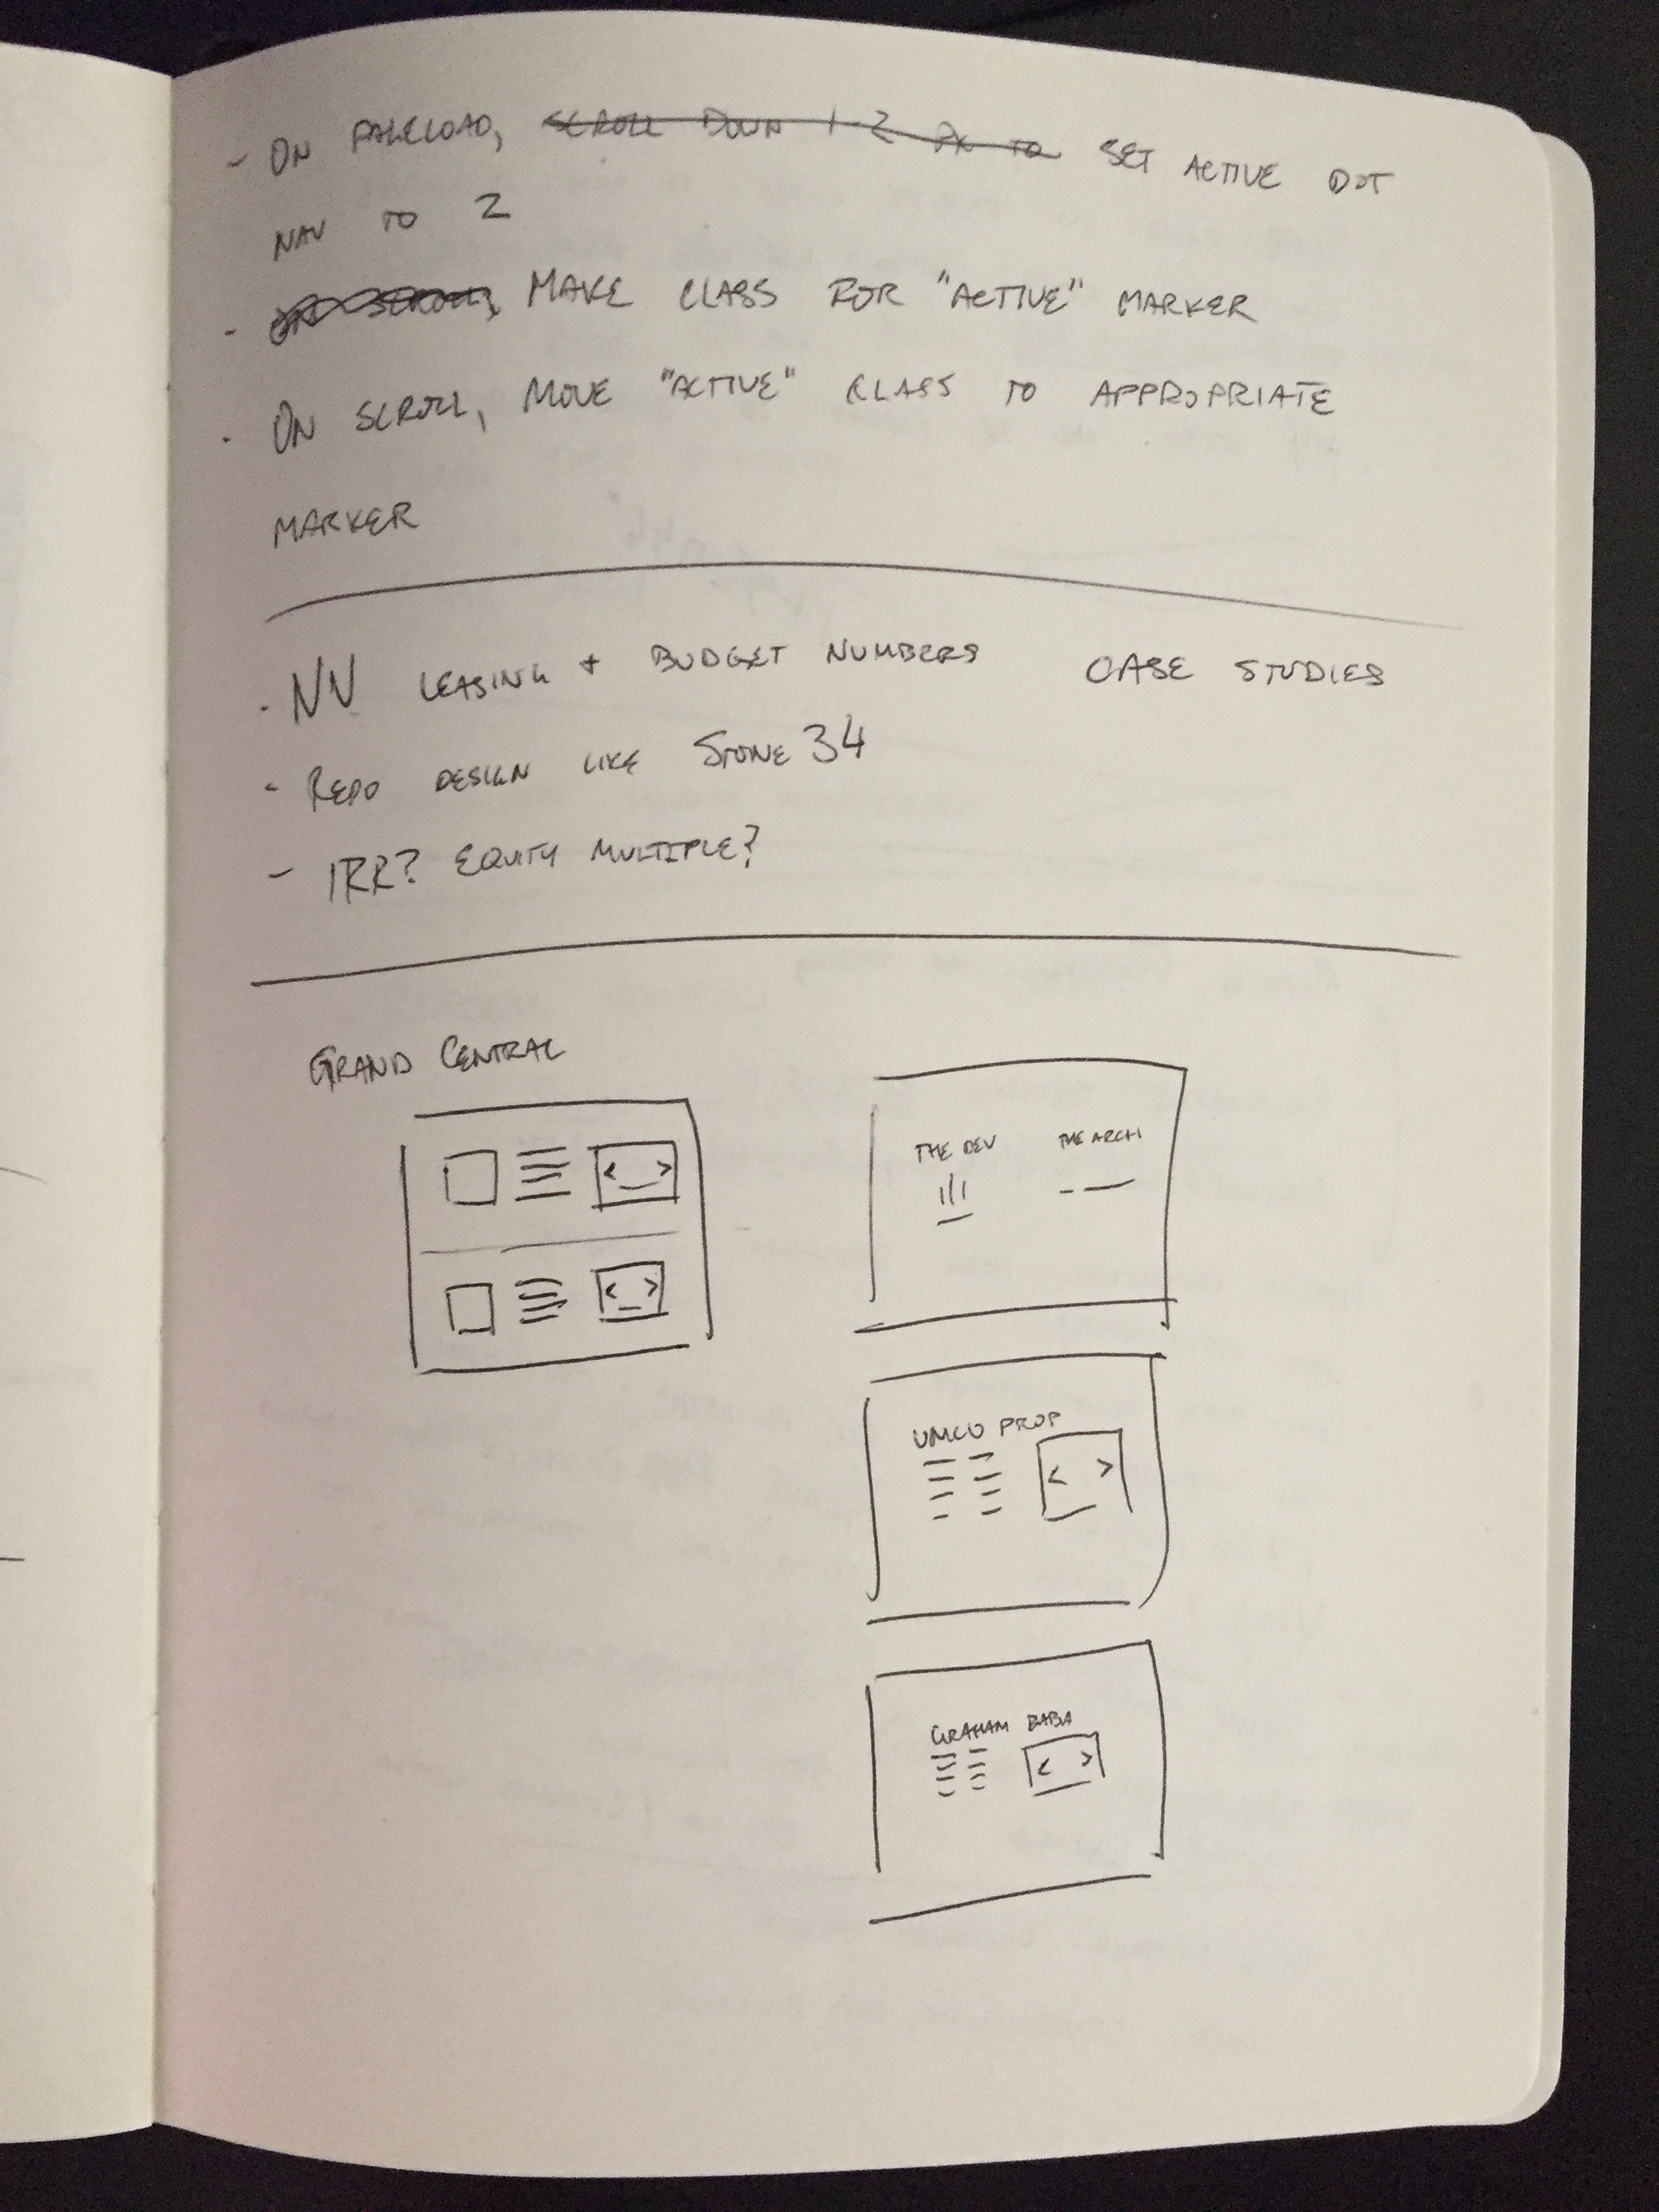 - ON PAGELOAD, SCROLL DOWN 1-2 PX TO SET ACTIVE DOT
NAV TO 2
- ON SCROLL, MAKE CLASS FOR "ACTIVE" MARKER
- ON SCROLL, MOVE "ACTIVE" CLASS TO APPROPRIATE
MARKER
- NV LEASING + BUDGET NUMBERS
CASE STUDIES
- REPO DESIGN LIKE STONE 34
- IRR? EQUITY MULTIPLE?
GRAND CENTRAL
THE DEV
THE ARCH
UMCO PROP
GRAHAM BABA